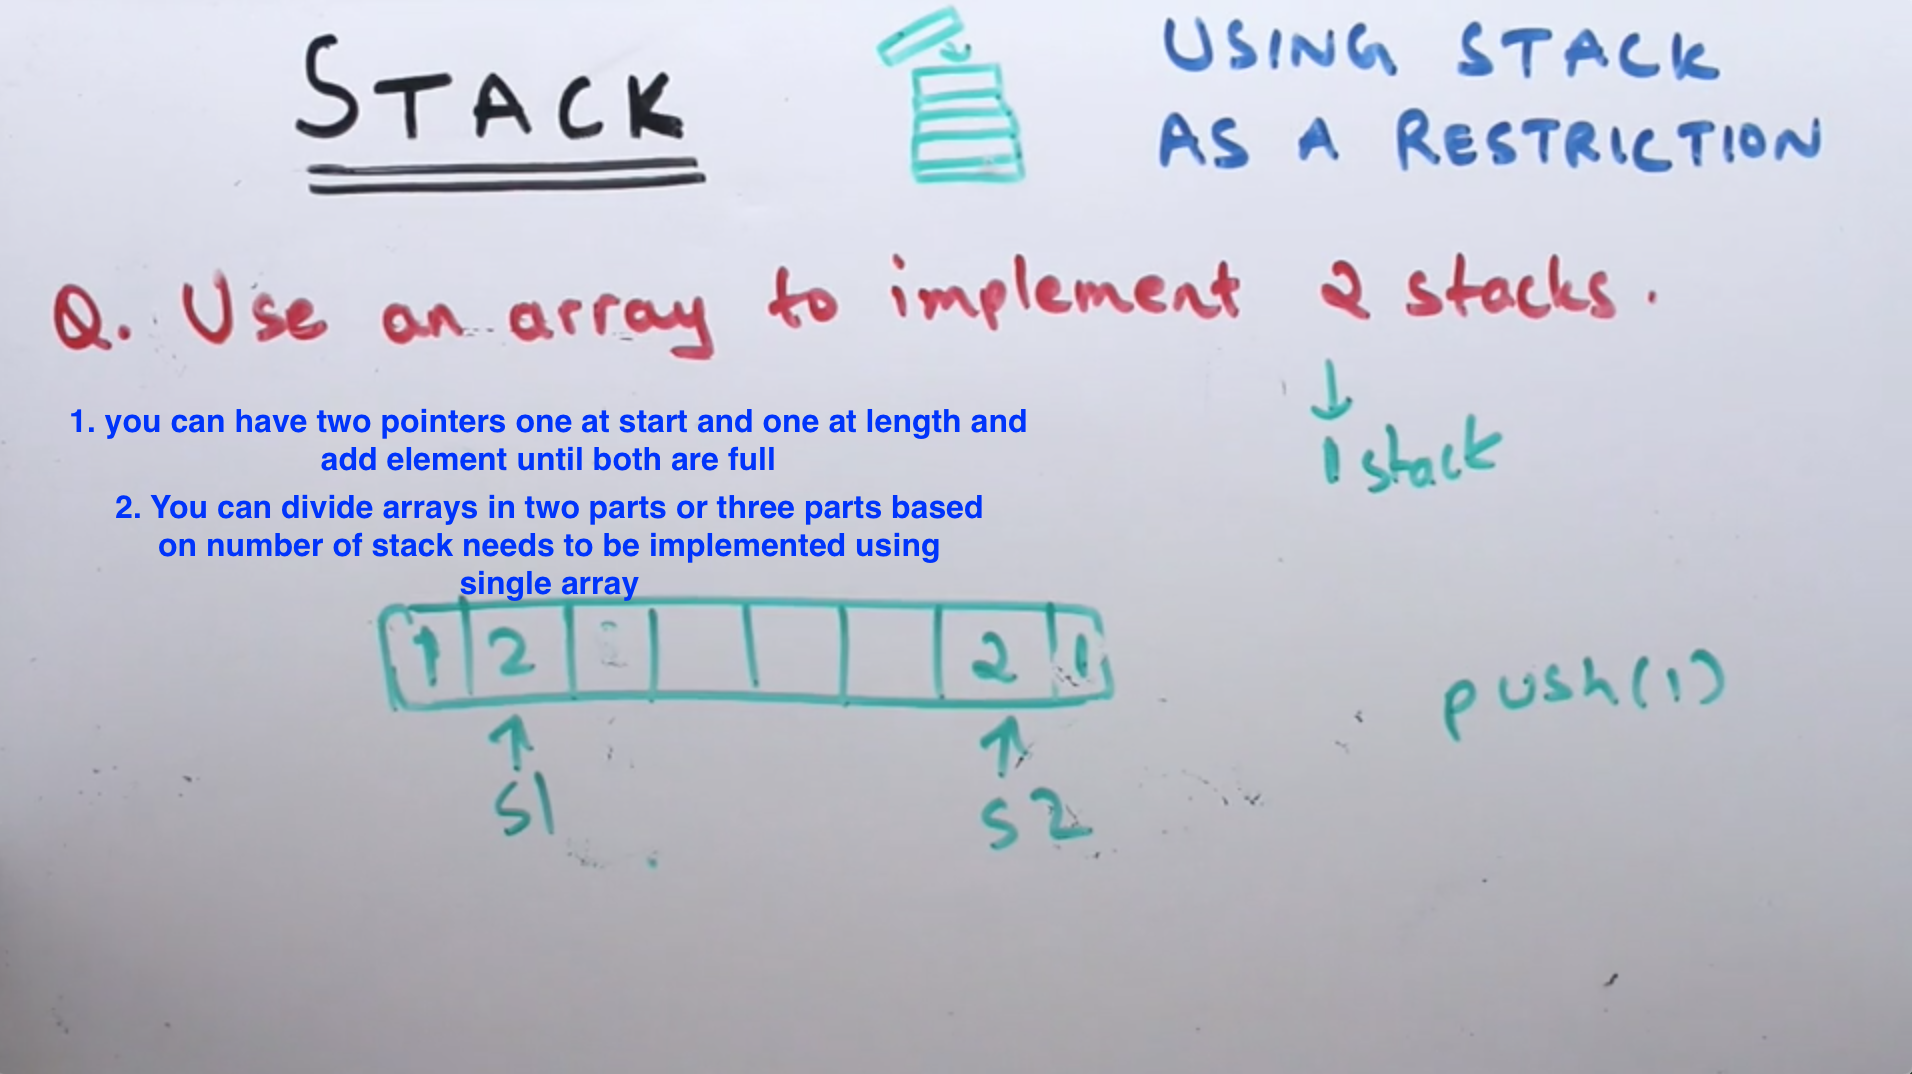 STACK
USING STACK
AS A RESTRICTION
Q. Use an array to implement 2 stacks.
1. you can have two pointers one at start and one at length and
add element until both are full
2. You can divide arrays in two parts or three parts based
on number of stack needs to be implemented using
single array
1 stack
1 2 2 1
push(1)
S1 S2